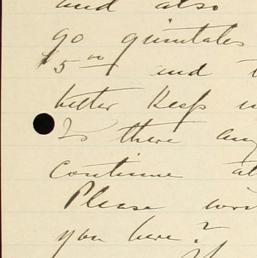 and also
go quintales
$5.00 and
better keep
Is there any
continue
Please
you here?